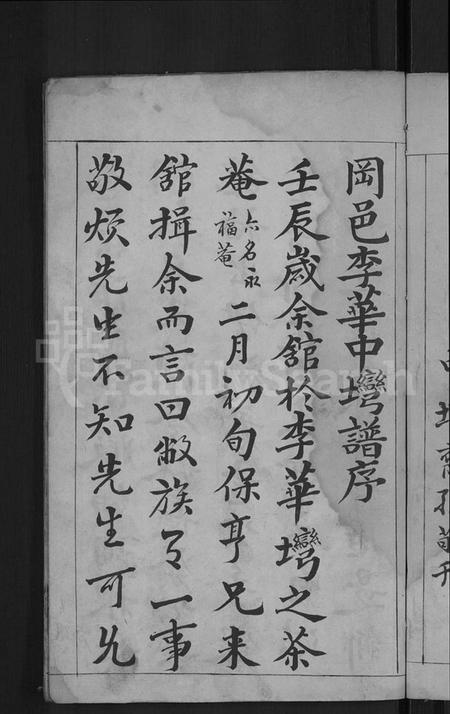 岡邑李華中塆譜序
壬辰歲余舘於李華塆之茶
菴六名永福菴二月初旬保亨兄来
舘揖余而言曰敝族有一事
敬煩先生不知先生可允
FamilySearch